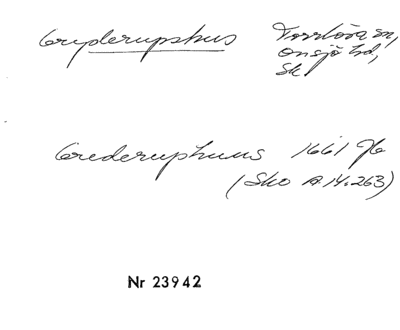 Gryderupshus Torrlösa sn,
Onsjö hd,
Sk
Grederuphuus 1661 Jb
(Sko A.14.263)
Nr 23942